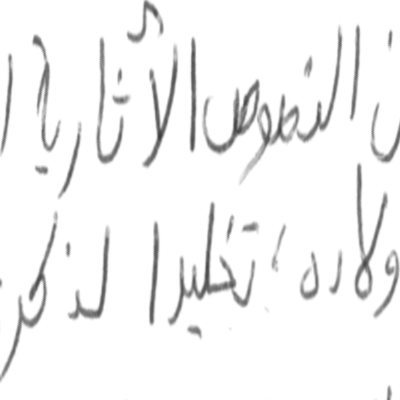 النصوص الأثارية
ولاده، تخليدا لذكر